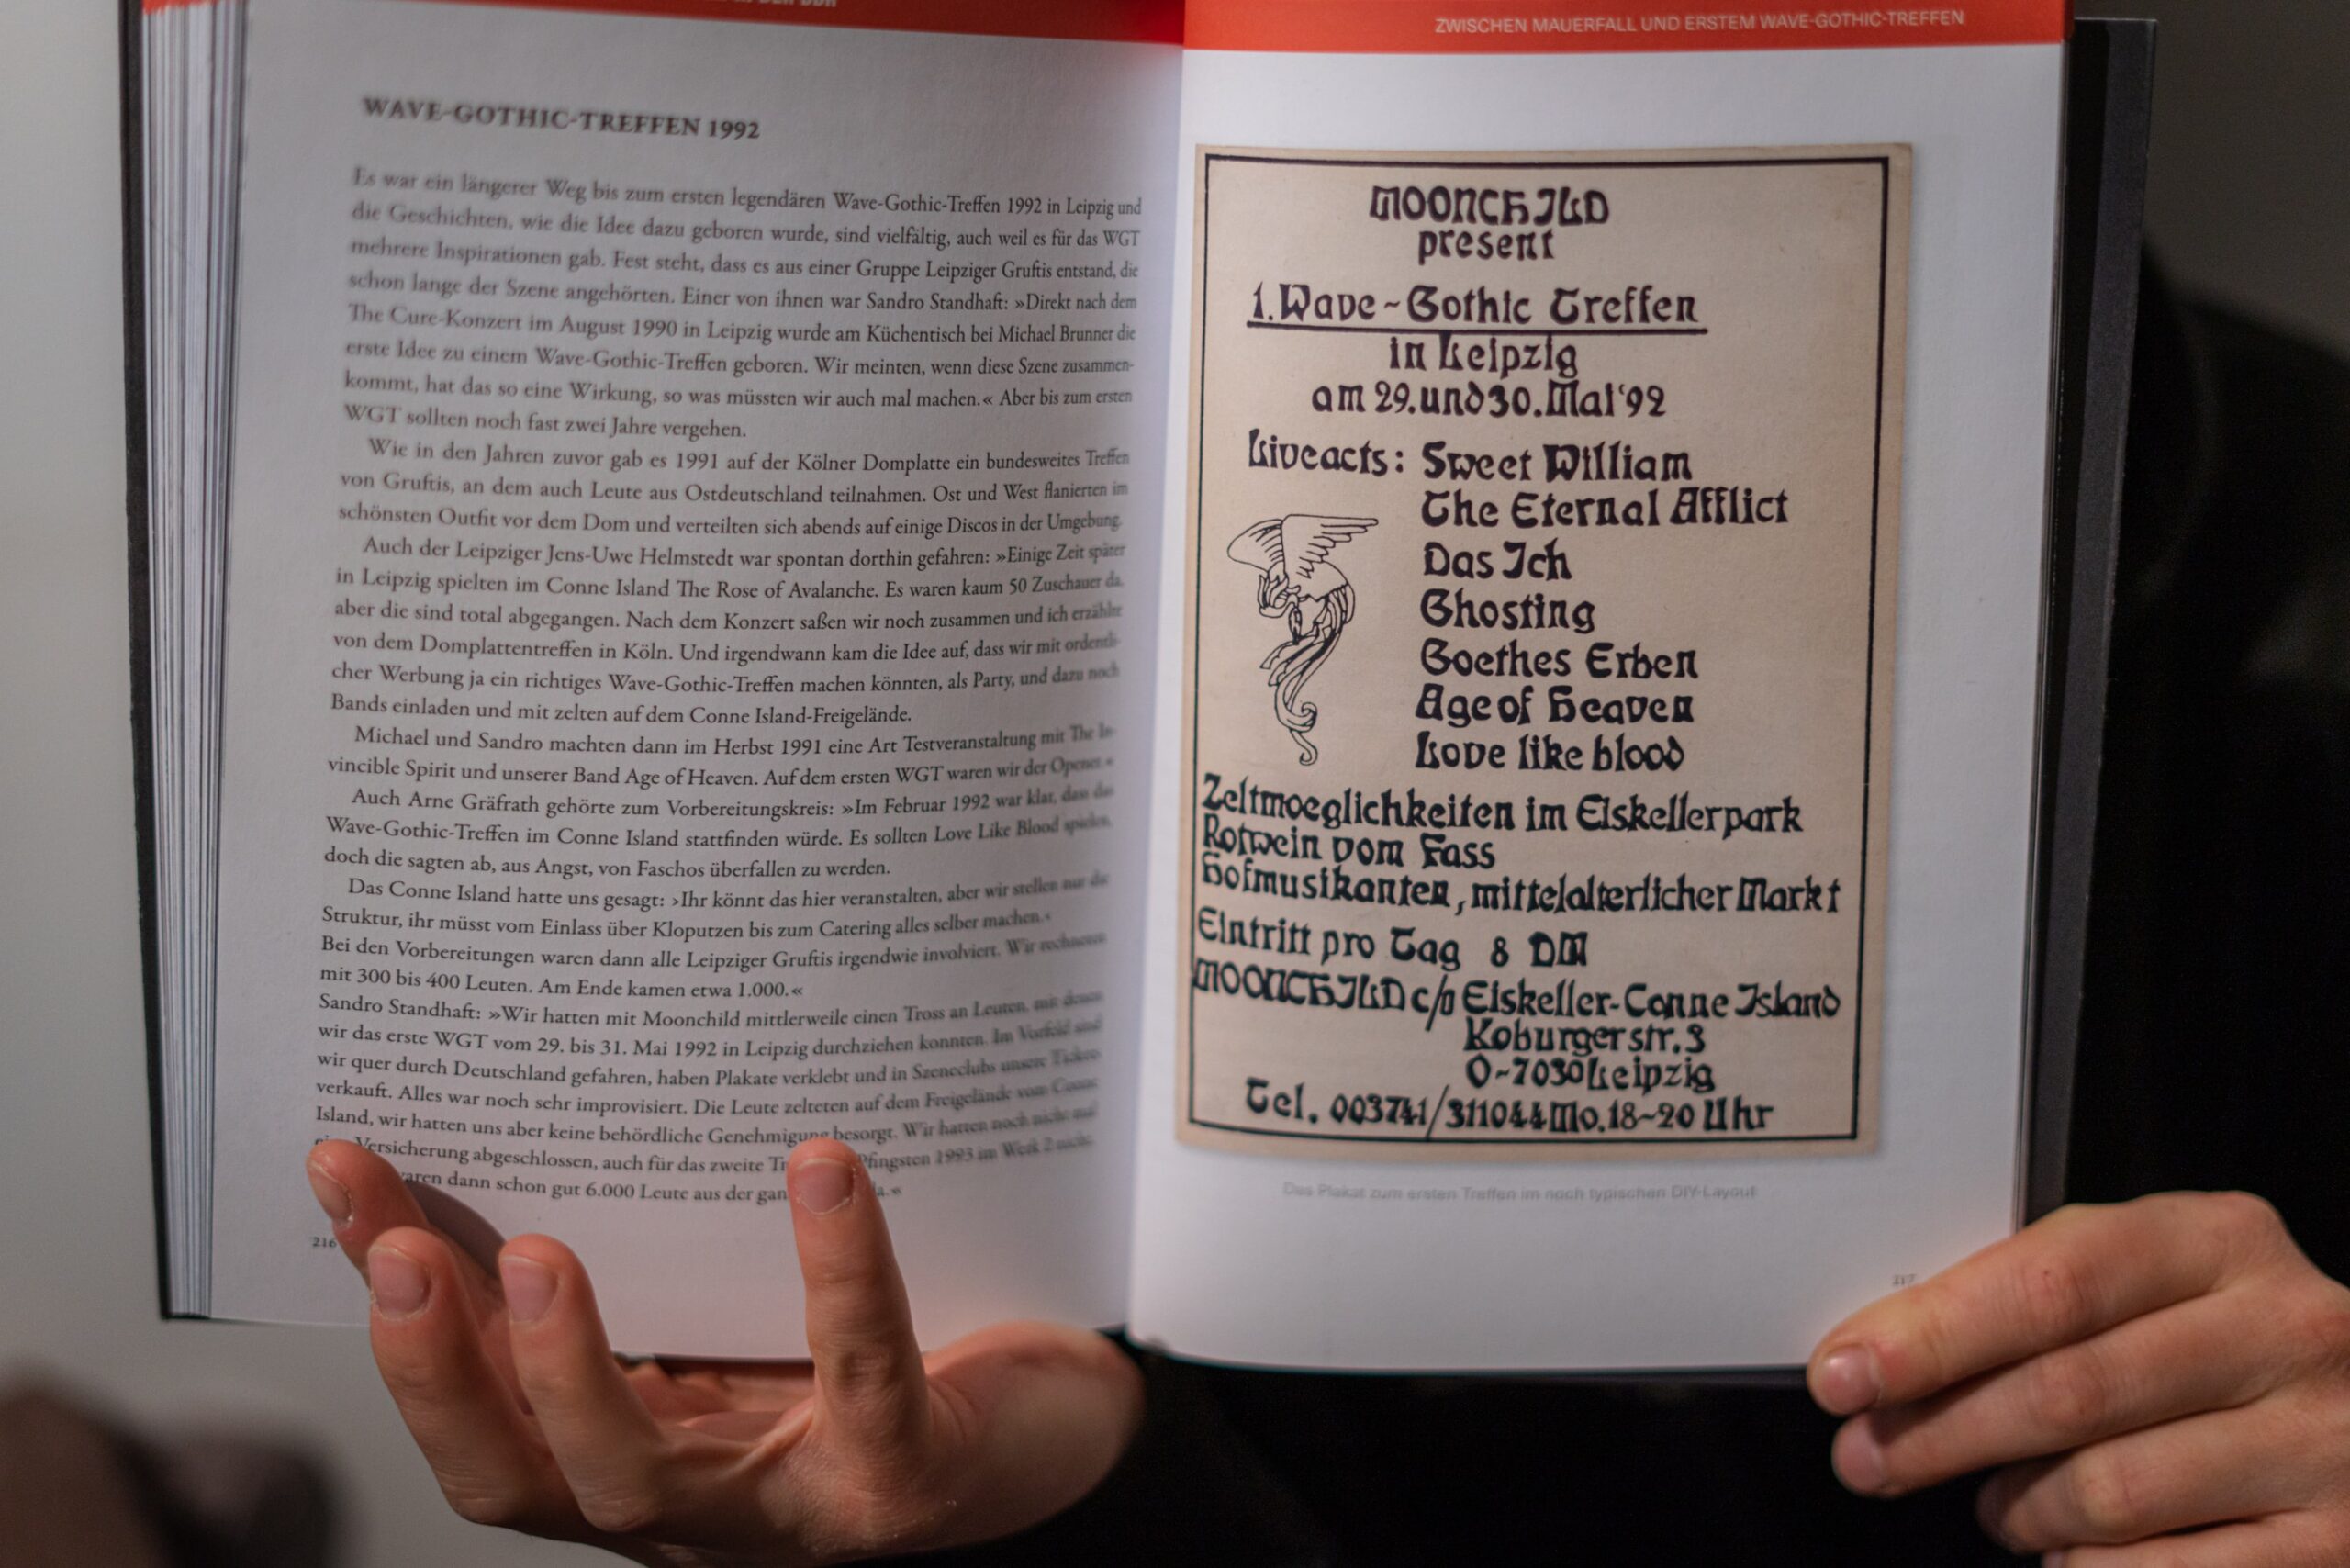 IN DER DDR
WAVE-GOTHIC-TREFFEN 1992
Es war ein längerer Weg bis zum ersten legendären Wave-Gothic-Treffen 1992 in Leipzig und
die Geschichten, wie die Idee dazu geboren wurde, sind vielfältig, auch weil es für das WGT
mehrere Inspirationen gab. Fest steht, dass es aus einer Gruppe Leipziger Gruftis entstand, die
schon lange der Szene angehörten. Einer von ihnen war Sandro Standhaft: »Direkt nach dem
The Cure-Konzert im August 1990 in Leipzig wurde am Küchentisch bei Michael Brunner die
erste Idee zu einem Wave-Gothic-Treffen geboren. Wir meinten, wenn diese Szene zusammen-
kommt, hat das so eine Wirkung, so was müssten wir auch mal machen.« Aber bis zum ersten
WGT sollten noch fast zwei Jahre vergehen.
Wie in den Jahren zuvor gab es 1991 auf der Kölner Domplatte ein bundesweites Treffen
von Gruftis, an dem auch Leute aus Ostdeutschland teilnahmen. Ost und West flanierten im
schönsten Outfit vor dem Dom und verteilten sich abends auf einige Discos in der Umgebung.
Auch der Leipziger Jens-Uwe Helmstedt war spontan dorthin gefahren: »Einige Zeit später
in Leipzig spielten im Conne Island The Rose of Avalanche. Es waren kaum 50 Zuschauer da,
aber die sind total abgegangen. Nach dem Konzert saßen wir noch zusammen und ich erzählte
von dem Domplattentreffen in Köln. Und irgendwann kam die Idee auf, dass wir mit ordentli-
cher Werbung ja ein richtiges Wave-Gothic-Treffen machen könnten, als Party, und dazu noch
Bands einladen und mit zelten auf dem Conne Island-Freigelände.
Michael und Sandro machten dann im Herbst 1991 eine Art Testveranstaltung mit The In-
vincible Spirit und unserer Band Age of Heaven. Auf dem ersten WGT waren wir der Opener.«
Auch Arne Gräfrath gehörte zum Vorbereitungskreis: »Im Februar 1992 war klar, dass das
Wave-Gothic-Treffen im Conne Island stattfinden würde. Es sollten Love Like Blood spielen,
doch die sagten ab, aus Angst, von Faschos überfallen zu werden.
Das Conne Island hatte uns gesagt: ›Ihr könnt das hier veranstalten, aber wir stellen nur die
Struktur, ihr müsst vom Einlass über Kloputzen bis zum Catering alles selber machen.‹
Bei den Vorbereitungen waren dann alle Leipziger Gruftis irgendwie involviert. Wir rechneten
mit 300 bis 400 Leuten. Am Ende kamen etwa 1.000.«
Sandro Standhaft: »Wir hatten mit Moonchild mittlerweile einen Tross an Leuten, mit denen
wir das erste WGT vom 29. bis 31. Mai 1992 in Leipzig durchziehen konnten. Im Vorfeld sind
wir quer durch Deutschland gefahren, haben Plakate verklebt und in Szeneclubs unsere Tickets
verkauft. Alles war noch sehr improvisiert. Die Leute zelteten auf dem Freigelände vom Conne
Island, wir hatten uns aber keine behördliche Genehmigung besorgt. Wir hatten noch nicht mal
eine Versicherung abgeschlossen, auch für das zweite Pfingsten 1993 im Werk 2 nicht.
waren dann schon gut 6.000 Leute aus der
216
ZWISCHEN MAUERFALL UND ERSTEM WAVE-GOTHIC-TREFFEN
MOONCHILD
present
1. Wave~Gothic Treffen
in Leipzig
am 29. und 30. Mai '92
Liveacts: Sweet William
The Eternal Afflict
Das Ich
Ghosting
Goethes Erben
Age of Heaven
Love like blood
Zeltmoeglichkeiten im Eiskellerpark
Rotwein vom Fass
Hofmusikanten, mittelalterlicher Markt
Eintritt pro Tag 8 DM
MOONCHILD c/o Eiskeller-Conne Island
Koburger str. 3
O~7030 Leipzig
Tel. 003741/311044 Mo. 18~20 Uhr
Das Plakat zum ersten Treffen im noch typischen DIY-Layout
217